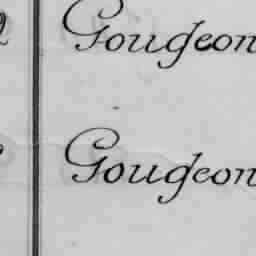 Gougeon
Gougeon